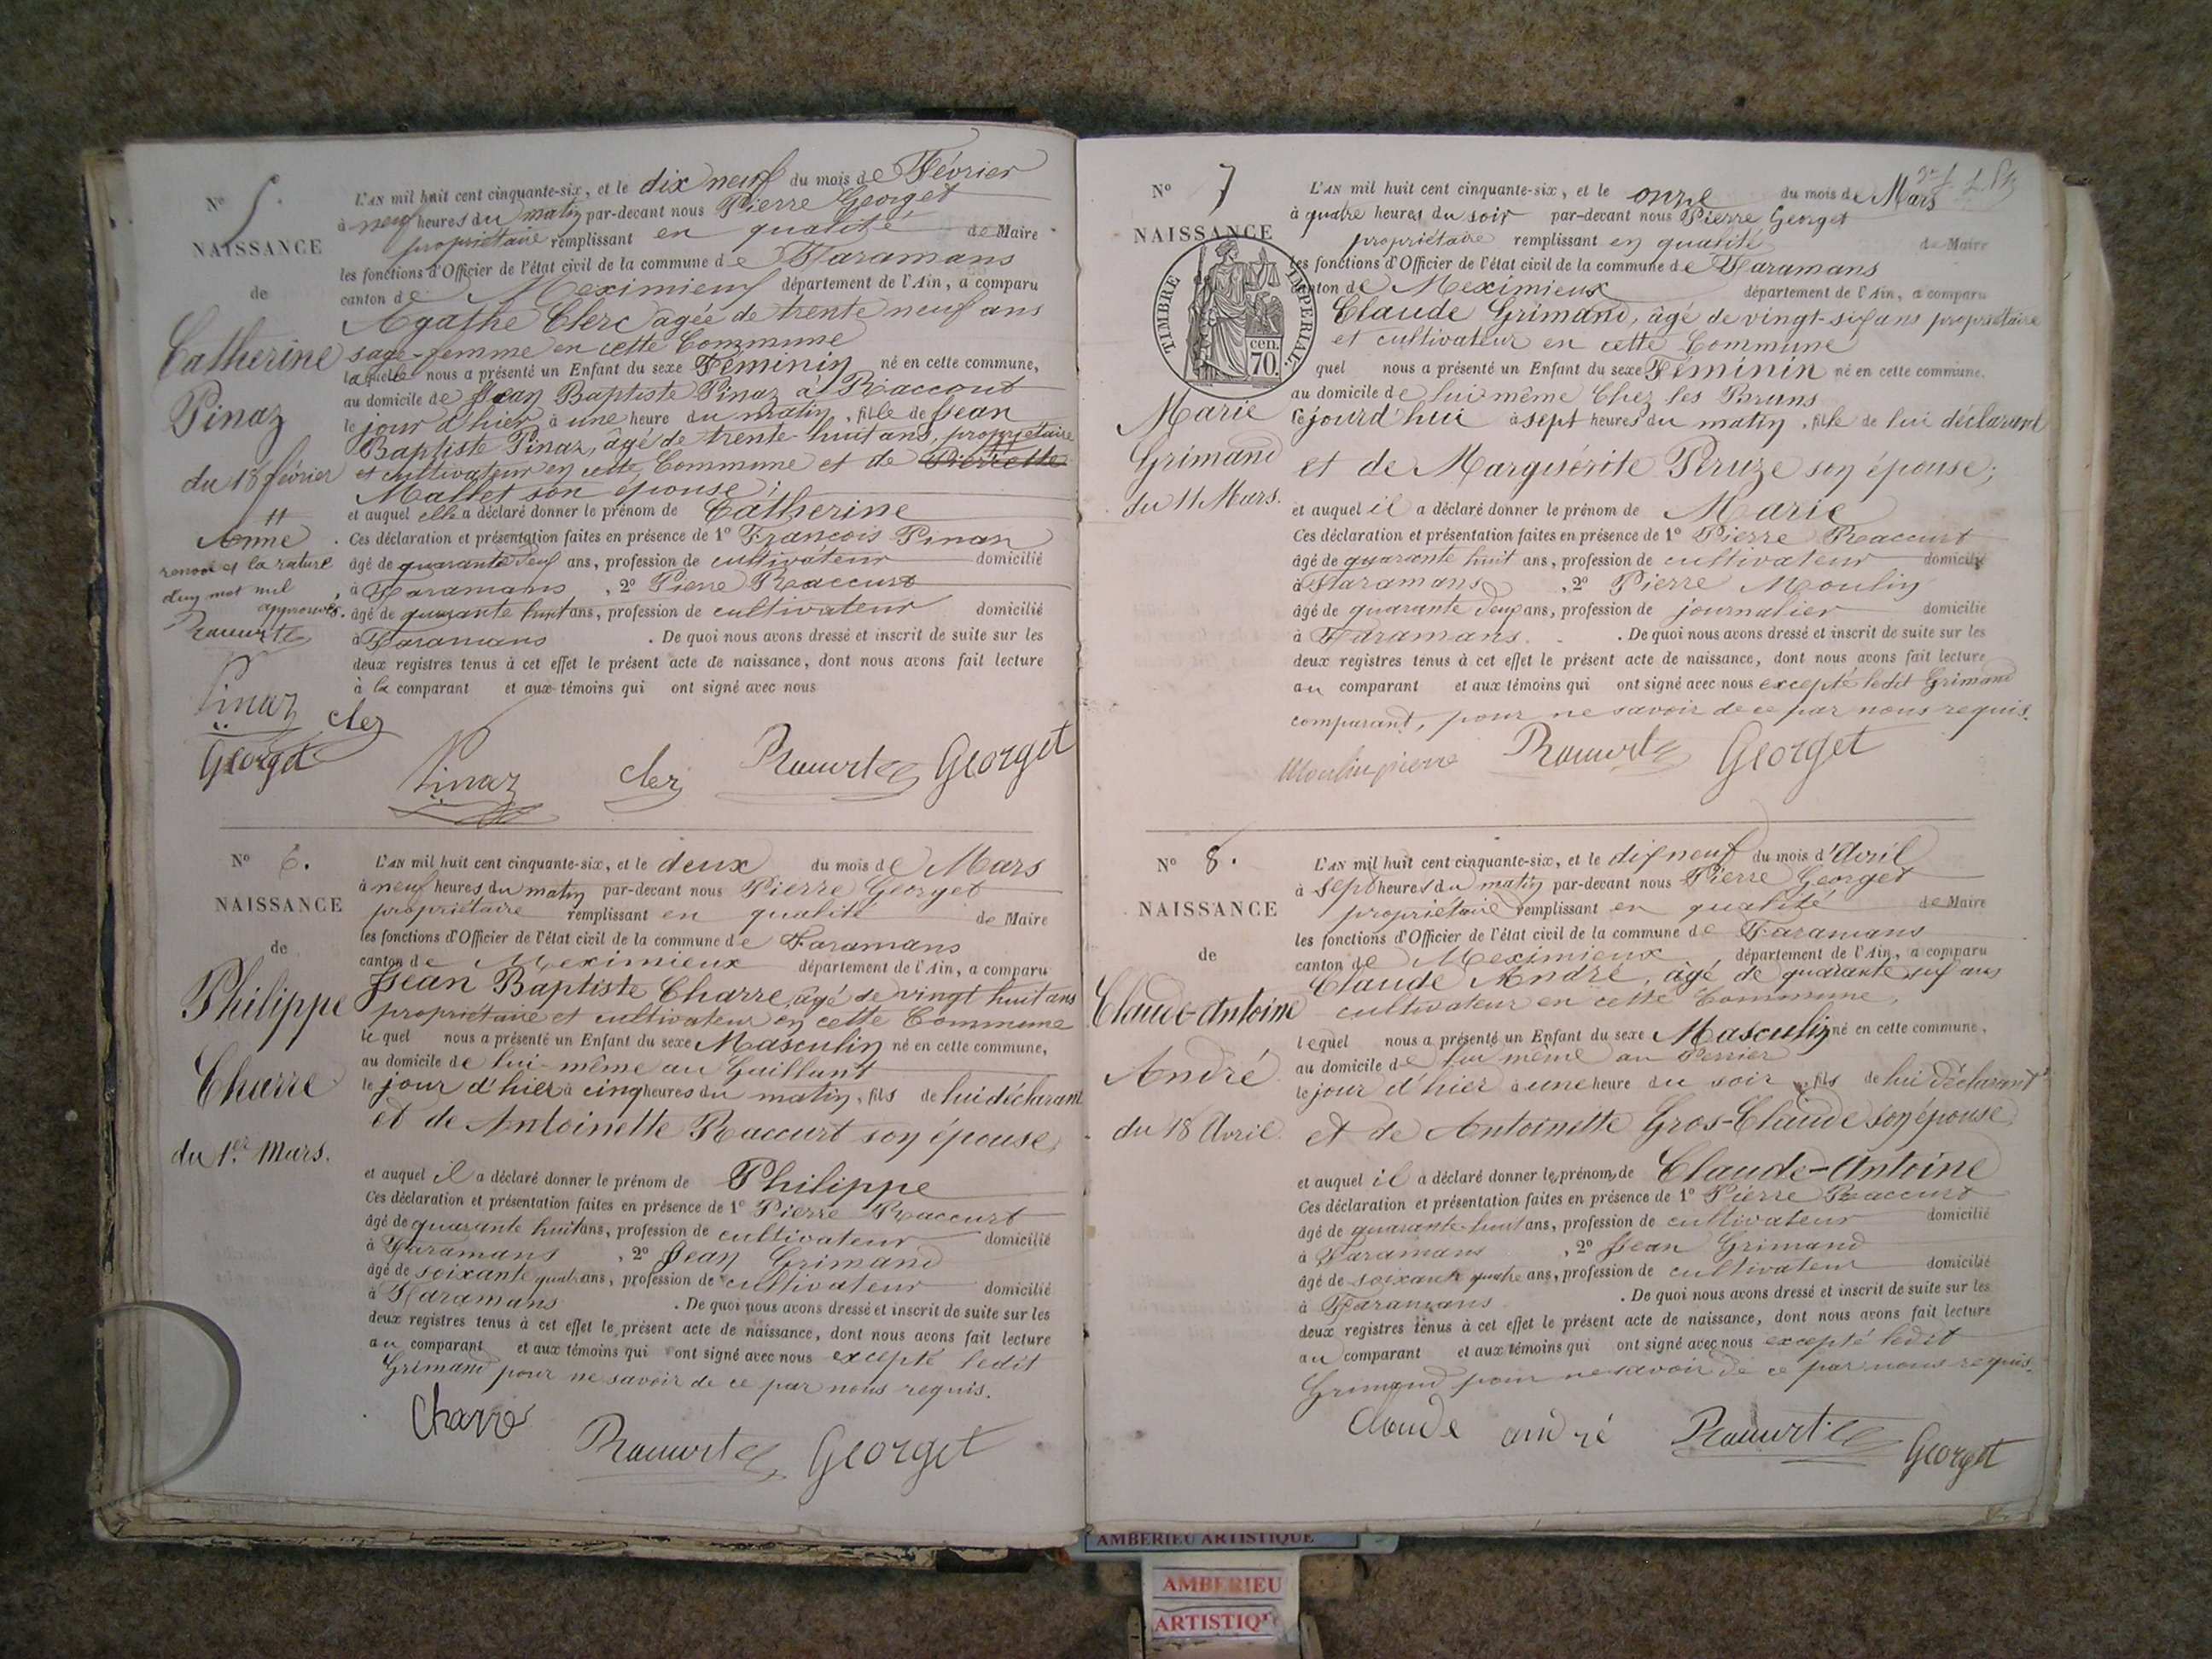 N° 5.
NAISSANCE
de
Catherine
Pinaz
du 18 février
Anne
renvoi et la rature
d'un mot nul
approuvés.
Raccurt
Pinaz
cler
Georget
L'AN mil huit cent cinquante-six, et le dix neuf du mois de Février
à neuf heures du matin par-devant nous Pierre Georget
propriétaire remplissant en qualité de Maire
les fonctions d'Officier de l'état civil de la commune de Faramans
canton de Meximieux département de l'Ain, a comparu
Agathe Clerc agée de trente neuf ans
sage-femme en cette Commune
laquelle nous a présenté un Enfant du sexe Féminin né en cette commune,
au domicile de Jean Baptiste Pinaz à Raccourt
le jour d'hier à une heure du matin, fille de Jean
Baptiste Pinaz, âgé de trente-huit ans, propriétaire
et cultivateur en cette Commune et de Pierrette
Mallet son épouse;
et auquel elle a déclaré donner le prénom de Catherine
Ces déclaration et présentation faites en présence de 1° François Pinaz
âgé de quarante neuf ans, profession de cultivateur domicilié
à Faramans, 2° Pierre Raccurt
âgé de quarante huit ans, profession de cultivateur domicilié
à Faramans. De quoi nous avons dressé et inscrit de suite sur les
deux registres tenus à cet effet le présent acte de naissance, dont nous avons fait lecture
à la comparant et aux témoins qui ont signé avec nous
Pinaz cler Raccurt Georget
N° 6.
NAISSANCE
de
Philippe
Charre
du 1.er Mars.
L'AN mil huit cent cinquante-six, et le deux du mois de Mars
à neuf heures du matin par-devant nous Pierre Georget
propriétaire remplissant en qualité de Maire
les fonctions d'Officier de l'état civil de la commune de Faramans
canton de Meximieux département de l'Ain, a comparu
Jean Baptiste Charre, âgé de vingt huit ans
propriétaire et cultivateur en cette Commune
lequel nous a présenté un Enfant du sexe Masculin né en cette commune,
au domicile de lui-même au Gaillant
le jour d'hier à cinq heures du matin, fils de lui déclarant
et de Antoinette Raccurt son épouse,
et auquel il a déclaré donner le prénom de Philippe
Ces déclaration et présentation faites en présence de 1° Pierre Raccurt
âgé de quarante huit ans, profession de cultivateur domicilié
à Faramans, 2° Jean Grimand
âgé de soixante quatre ans, profession de cultivateur domicilié
à Faramans. De quoi nous avons dressé et inscrit de suite sur les
deux registres tenus à cet effet le présent acte de naissance, dont nous avons fait lecture
au comparant et aux témoins qui ont signé avec nous excepté ledit
Grimand pour ne savoir de ce par nous requis.
Charre Raccurt Georget
N° 7
NAISSANCE
TIMBRE IMPERIAL
70. cen.
Marie
Grimand
du 11 Mars.
L'AN mil huit cent cinquante-six, et le onze du mois de Mars
à quatre heures du soir par-devant nous Pierre Georget
propriétaire remplissant en qualité de Maire
les fonctions d'Officier de l'état civil de la commune de Faramans
canton de Meximieux département de l'Ain, a comparu
Claude Grimand, âgé de vingt-six ans propriétaire
et cultivateur en cette Commune
quel nous a présenté un Enfant du sexe Féminin né en cette commune.
au domicile de lui même Chez les Bruns
le jourd'hui à sept heures du matin, fille de lui déclarant
et de Marguérite Peruze son épouse;
et auquel il a déclaré donner le prénom de Marie
Ces déclaration et présentation faites en présence de 1° Pierre Raccurt
âgé de quarante huit ans, profession de cultivateur domicilié
à Faramans, 2° Pierre Moulin
âgé de quarante deux ans, profession de journalier domicilié
à Faramans. De quoi nous avons dressé et inscrit de suite sur les
deux registres tenus à cet effet le présent acte de naissance, dont nous avons fait lecture
au comparant et aux témoins qui ont signé avec nous excepté ledit Grimand
comparant, pour ne savoir de ce par nous requis.
Moulin pierre Raccurt Georget
N° 8.
NAISSANCE
de
Claude-Antoine
André
du 18 Avril.
L'AN mil huit cent cinquante-six, et le dix neuf du mois d'Avril
à sept heures du matin par-devant nous Pierre Georget
propriétaire remplissant en qualité de Maire
les fonctions d'Officier de l'état civil de la commune de Faramans
canton de Meximieux département de l'Ain, a comparu
Claude André, âgé de quarante six ans
cultivateur en cette Commune,
lequel nous a présenté un Enfant du sexe Masculin né en cette commune,
au domicile de lui même au Perrier
le jour d'hier à une heure du soir, fils de lui déclarant
et de Antoinette Gros-Claude son épouse
et auquel il a déclaré donner le prénom de Claude-Antoine
Ces déclaration et présentation faites en présence de 1° Pierre Raccurt
âgé de quarante-huit ans, profession de cultivateur domicilié
à Faramans, 2° Jean Grimand
âgé de soixante quatre ans, profession de cultivateur domicilié
à Faramans. De quoi nous avons dressé et inscrit de suite sur les
deux registres tenus à cet effet le présent acte de naissance, dont nous avons fait lecture
au comparant et aux témoins qui ont signé avec nous excepté ledit
Grimand pour ne savoir de ce par nous requis.
Claude andré Raccurt Georget
AMBERIEU ARTISTIQUE
AMBERIEU
ARTISTIQ